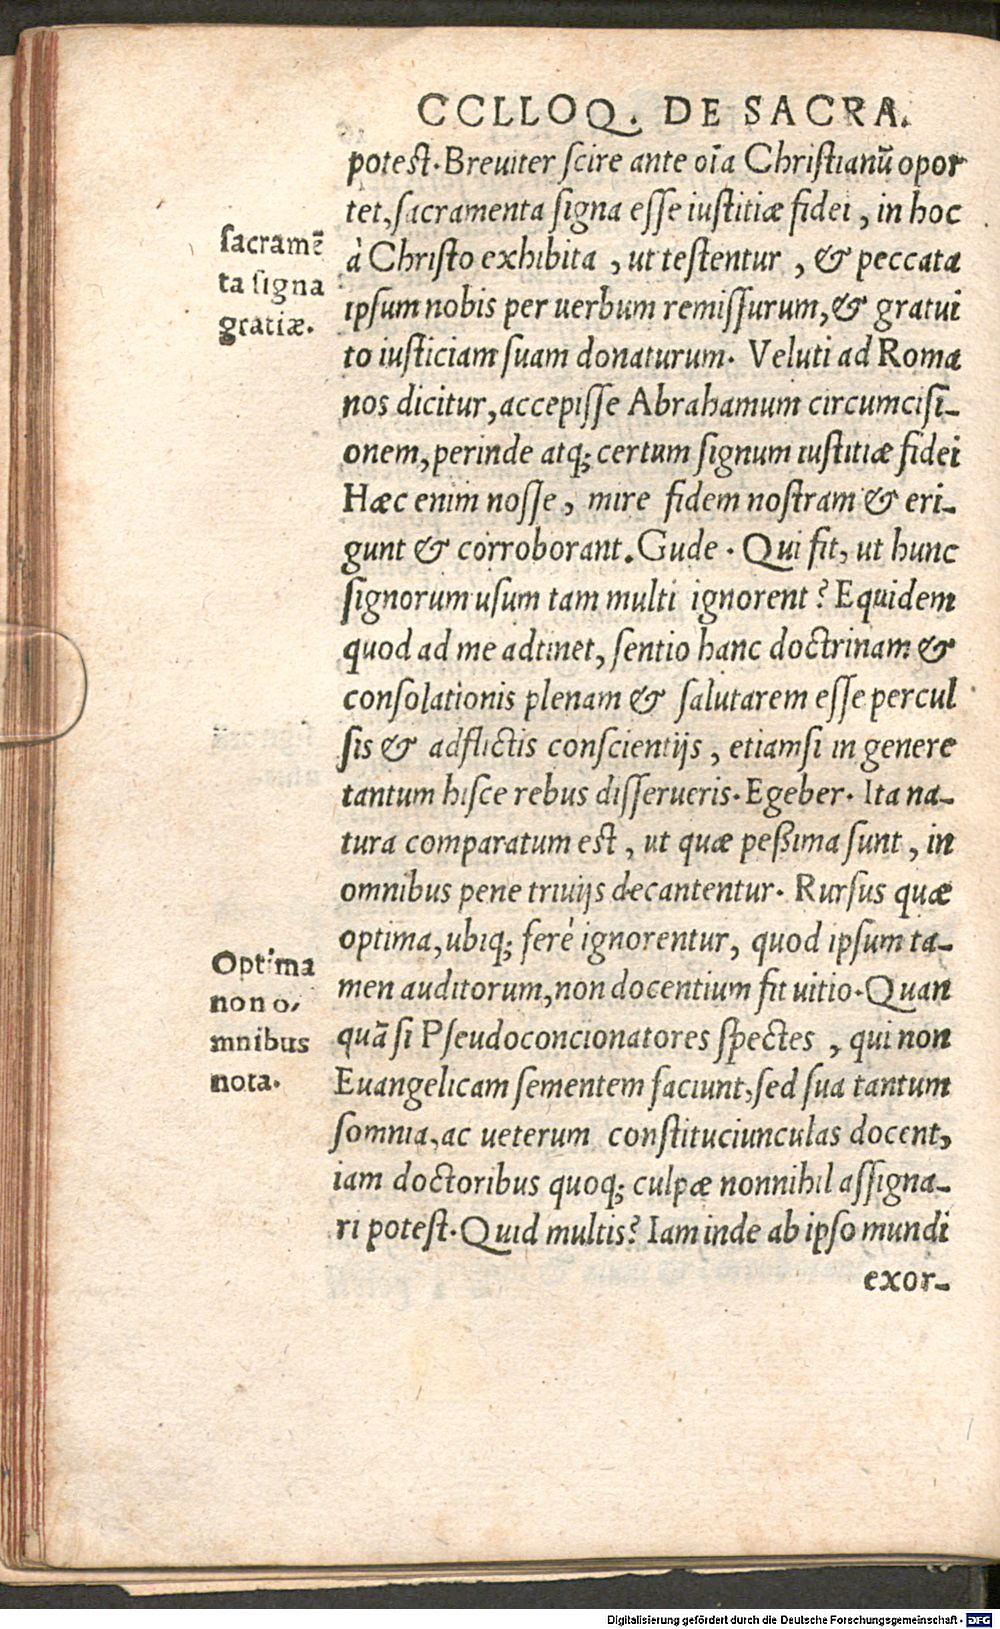 CCLLOQ. DE SACRA.
potest. Breuiter scire ante oīa Christianū opor
tet, sacramenta signa esse iustitiæ fidei, in hoc
à Christo exhibita, ut testentur, & peccata
ipsum nobis per uerbum remissurum, & gratui
to iusticiam suam donaturum. Veluti ad Roma
nos dicitur, accepisse Abrahamum circumcisi-
onem, perinde atq; certum signum iustitiæ fidei
Hæc enim nosse, mire fidem nostram & eri-
gunt & corroborant. Gude. Qui fit, ut hunc
signorum usum tam multi ignorent? Equidem
quod ad me adtinet, sentio hanc doctrinam &
consolationis plenam & salutarem esse percul
sis & adflictis conscientijs, etiamsi in genere
tantum hisce rebus disserueris. Egeber. Ita na-
tura comparatum est, ut quæ peßima sunt, in
omnibus pene triuijs decantentur. Rursus quæ
optima, ubiq; ferè ignorentur, quod ipsum ta-
men auditorum, non docentium fit uitio. Quan
quā si Pseudoconcionatores spectes, qui non
Euangelicam sementem faciunt, sed sua tantum
somnia, ac ueterum constituciunculas docent,
iam doctoribus quoq; culpæ nonnihil assigna-
ri potest. Quid multis? Iam inde ab ipso mundi
exor-
sacramē
ta signa
gratiæ.
Optima
non o-
mnibus
nota.
Digitalisierung gefördert durch die Deutsche Forschungsgemeinschaft - DFG